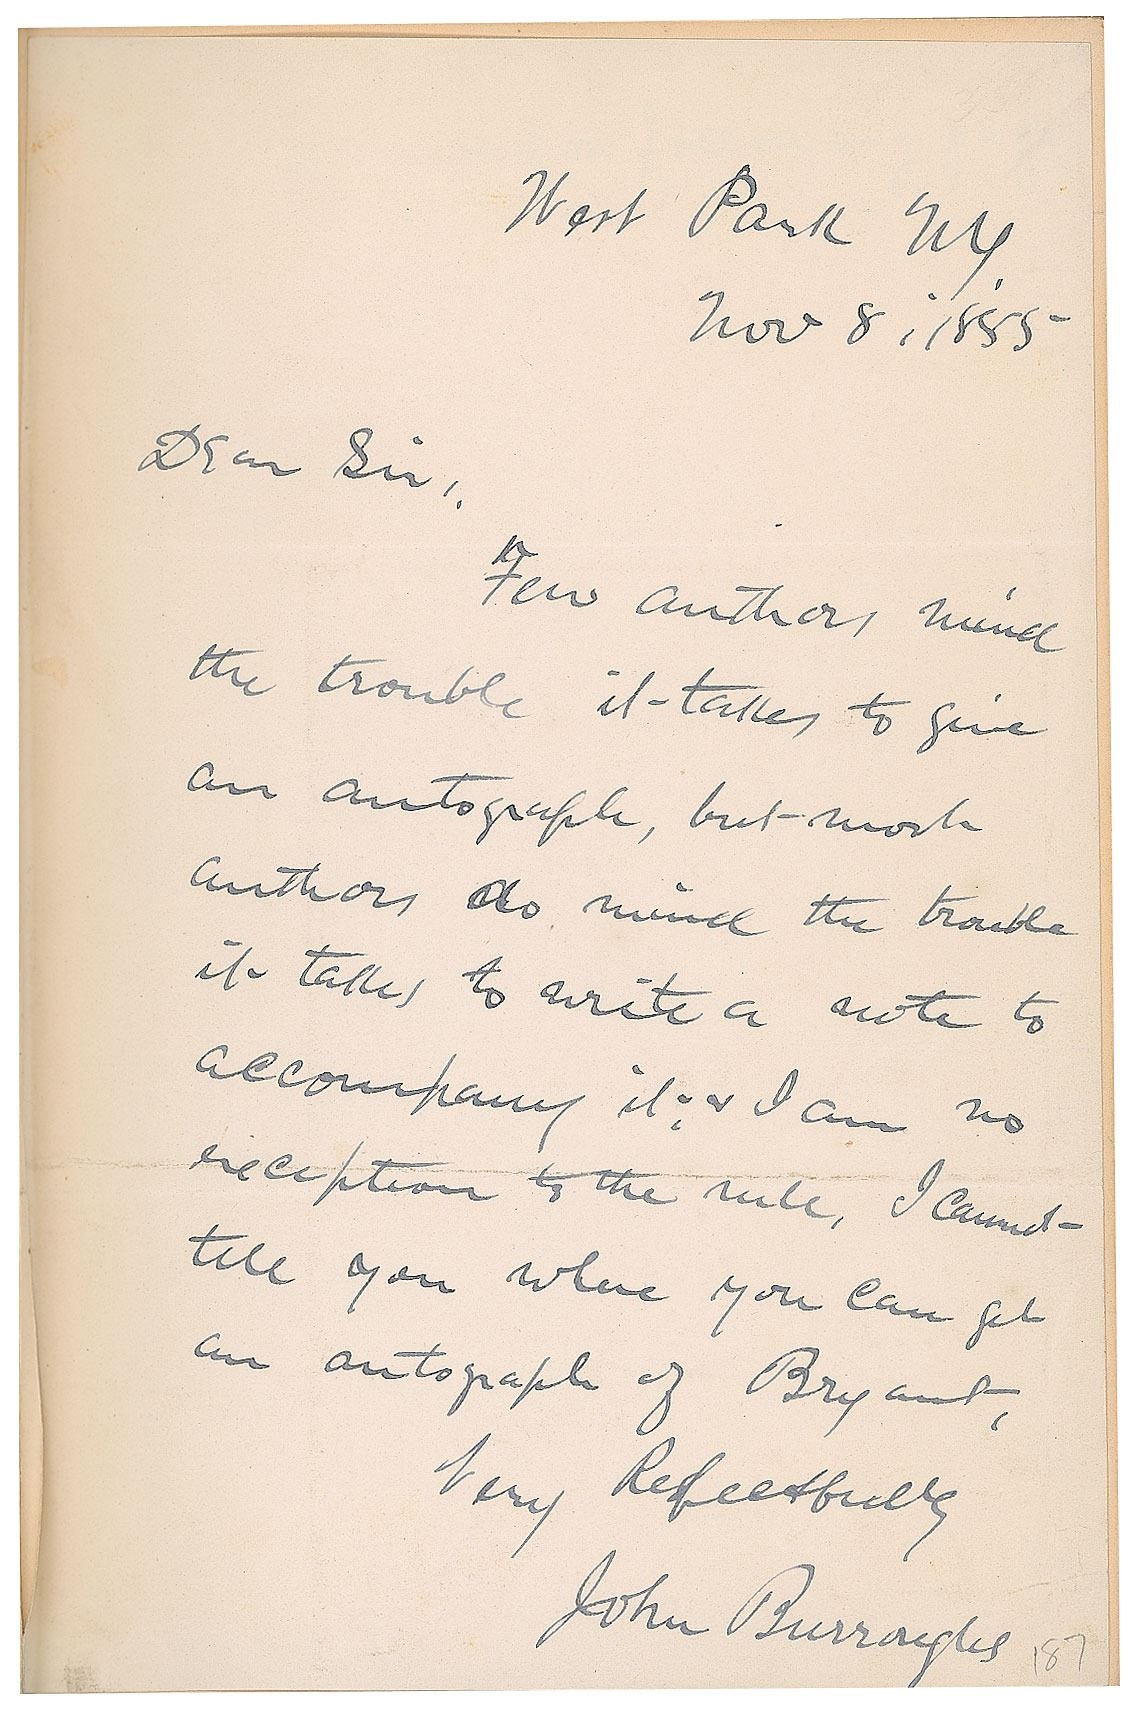 West Park NY.
Nov 8, 1885
Dear Sir,
Few authors mind
the trouble it takes to give
an autograph, but most
authors do mind the trouble
it takes to write a note to
accompany it; & I am no
exception to the rule, I cannot
tell you where you can get
an autograph of Bryant,
Very Respectfully
John Burroughs
187